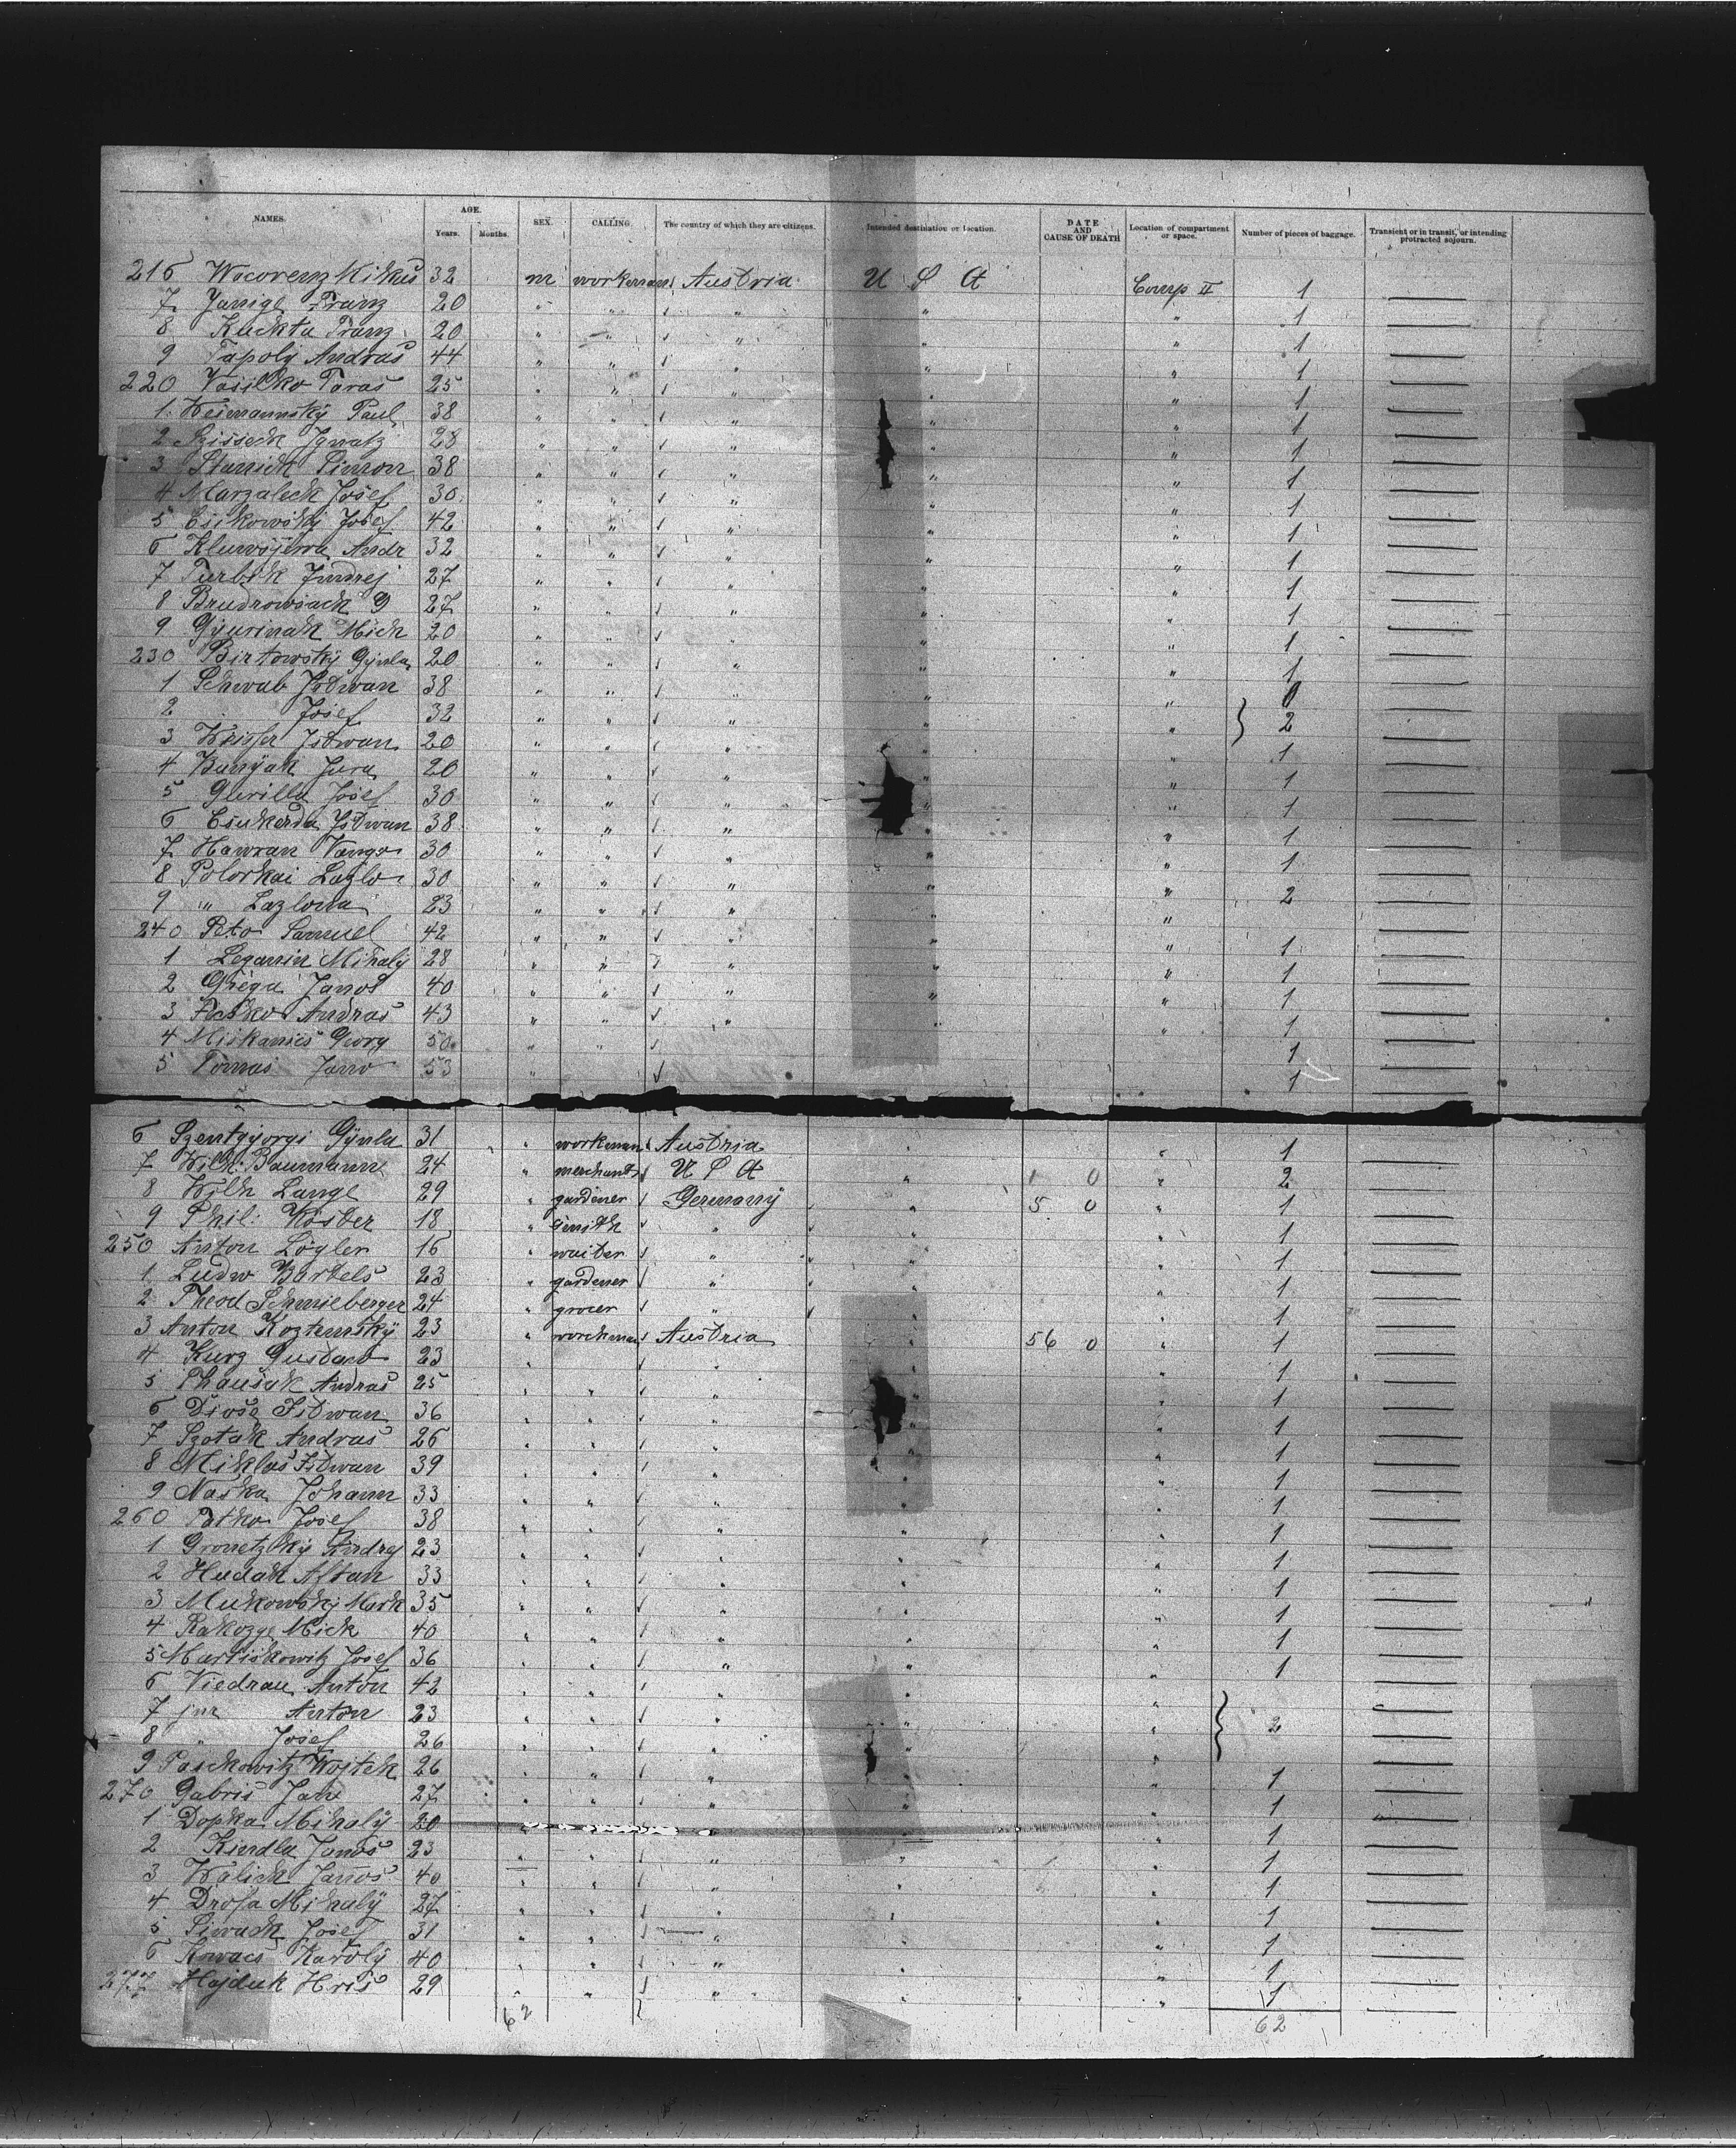 NAMES. AGE. Years. Months. SEX. CALLING. The country of which they are citizens. Intended destination or location. DATE AND CAUSE OF DEATH Location of compartment or space. Number of pieces of baggage. Transient or in transit, or intending protracted sojourn.
216 Wocovenz Mikus 32 m workman Austria U S A Comp II 1
7 Franz 20 " " " " " 1
8 Kuckta Franz 20 " " " " " 1
9 Tapoly Andras 44 " " " " " 1
220 Vasilko Taras 25 " " " " " 1
1 Weimannsky Paul 38 " " " " " 1
2 Ignatz 28 " " " " " 1
3 Simon 38 " " " " " 1
4 Marzaleck Josef 30 " " " " " 1
5 Csikowsky Josef 42 " " " " " 1
6 Andr 32 " " " " " 1
7 Turbak Andrej 27 " " " " " 1
8 27 " " " " " 1
9 Gyurinak Mich 20 " " " " " 1
230 Birtowsky Gyula 20 " " " " " 1
1 Schwab Istwan 38 " " " " "
2 Josef 32 " " " " " 2
3 Istwan 20 " " " " " 1
4 Banyak Jura 20 " " " " " 1
5 Gurilla Josef 30 " " " " " 1
6 Csukerda Istwan 38 " " " " " 1
7 Hawran 30 " " " " " 1
8 Polorkai Lazlo 30 " " " " " 2
9 " Lazlowa 23 " " " " "
240 Peto Samuel 42 " " " " " 1
1 Leganin Mihaly 28 " " " " " 1
2 Grega Janos 40 " " " " " 1
3 Andras 43 " " " " 1
4 Miskanics Georg 50 " " 1
5 Tomas Jano 53 " 1
6 Szentgyorgi Gyula 31 " workman Austria " 1
7 Wilh. Baumann 24 " merchant U S A " 1 0 " 2
8 Wilh Lange 29 " gardener Germany " 5 0 " 1
9 Phil: Köster 18 " smith " " 1
250 Anton Lögler 16 " waiter " " 1
1 Ludw Bartels 23 " gardener " " 1
2 Theod Schnieberger 24 " grocer " 1
3 Anton Koztemsky 23 " workman Austria " 56 0 " 1
4 Kurz Gustav 23 " " " 1
5 Andras 25 " " " " 1
6 Istwan 36 " " " " " 1
7 Szotak Andras 26 " " " " 1
8 Miklos Istwan 39 " " " " 1
9 Naska Johann 33 " " " " " 1
260 Patko Josef 38 " " " " " 1
1 Gronetzky Andrej 23 " " " " " 1
2 Hudak 33 " " " " " 1
3 Mukowsky Mark 35 " " " " " 1
4 Mick 40 " " " " " 1
5 Martiskowitz Josef 36 " " " " " 1
6 Viedrau Anton 42 " " " " "
7 jun Anton 23 " " " " " 2
8 " Josef 26 " " " " "
9 Paskowitz Wojtek 26 " " " " " 1
270 Gabris Jan 27 " " " " " 1
1 Dopka Mihaly 20 " " " " " 1
2 Kindla Janos 23 " " " " " 1
3 Walick Janos 40 " " " " " 1
4 Mihaly 27 " " " " " 1
5 Siwack Josef 31 " " " " " 1
6 Kowacs Karoly 40 " " " " " 1
277 Hajduk Hris 29 " " " " " 1
62 62